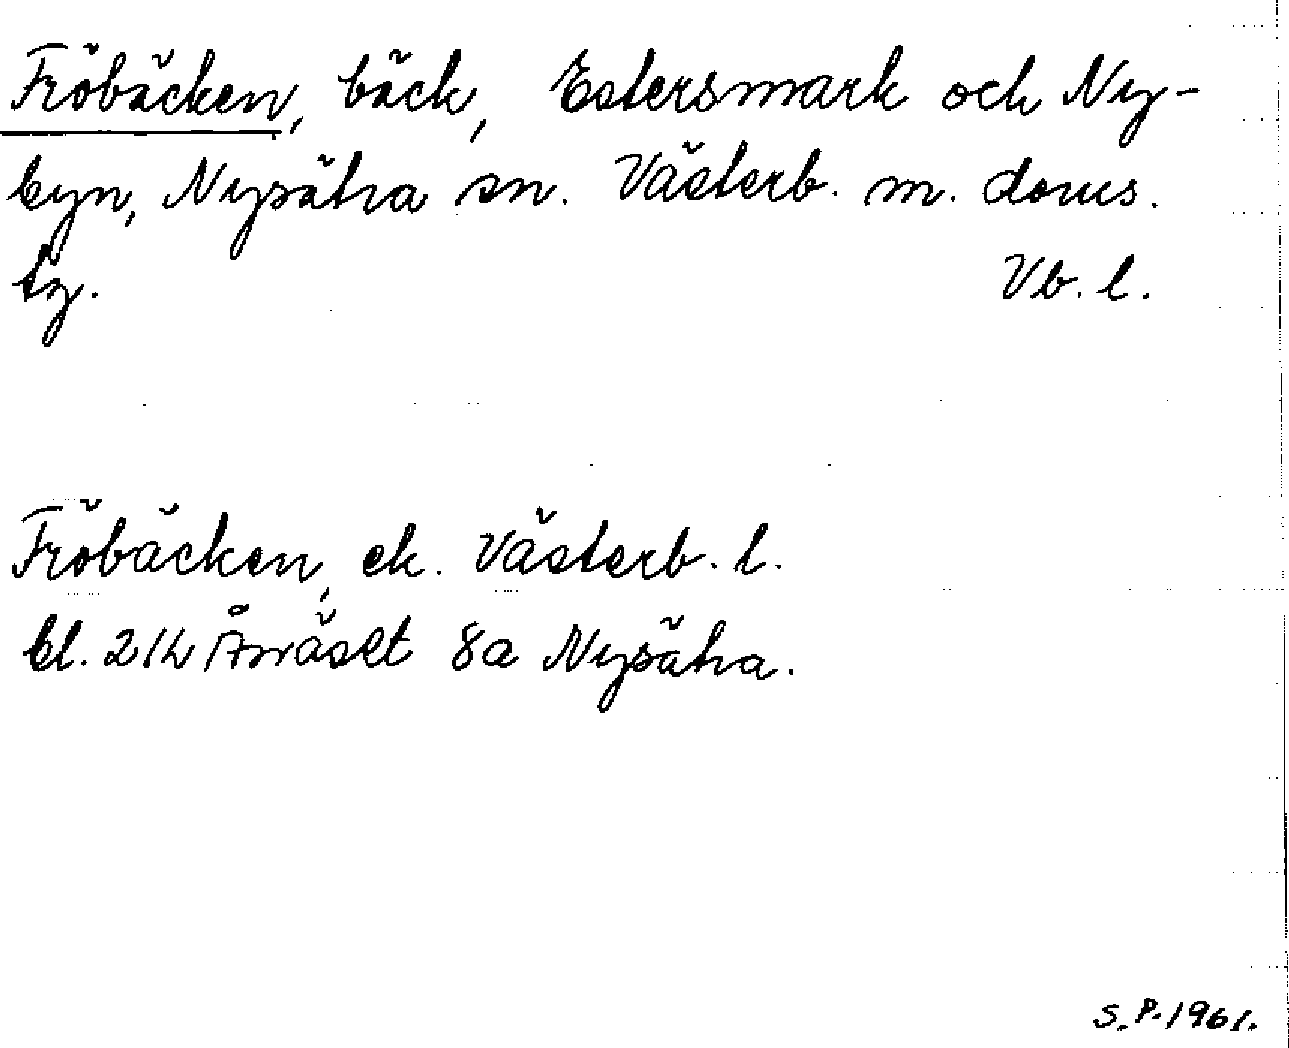 Fröbäcken, bäck, Estersmark och Ny-
byn, Nysätra sn. Västerb. m. doms.
tg. Vb. l.
Fröbäcken, ek. Västerb. l.
bl. 21L Ånäset 8a Nysätra.
S.P. 1961.